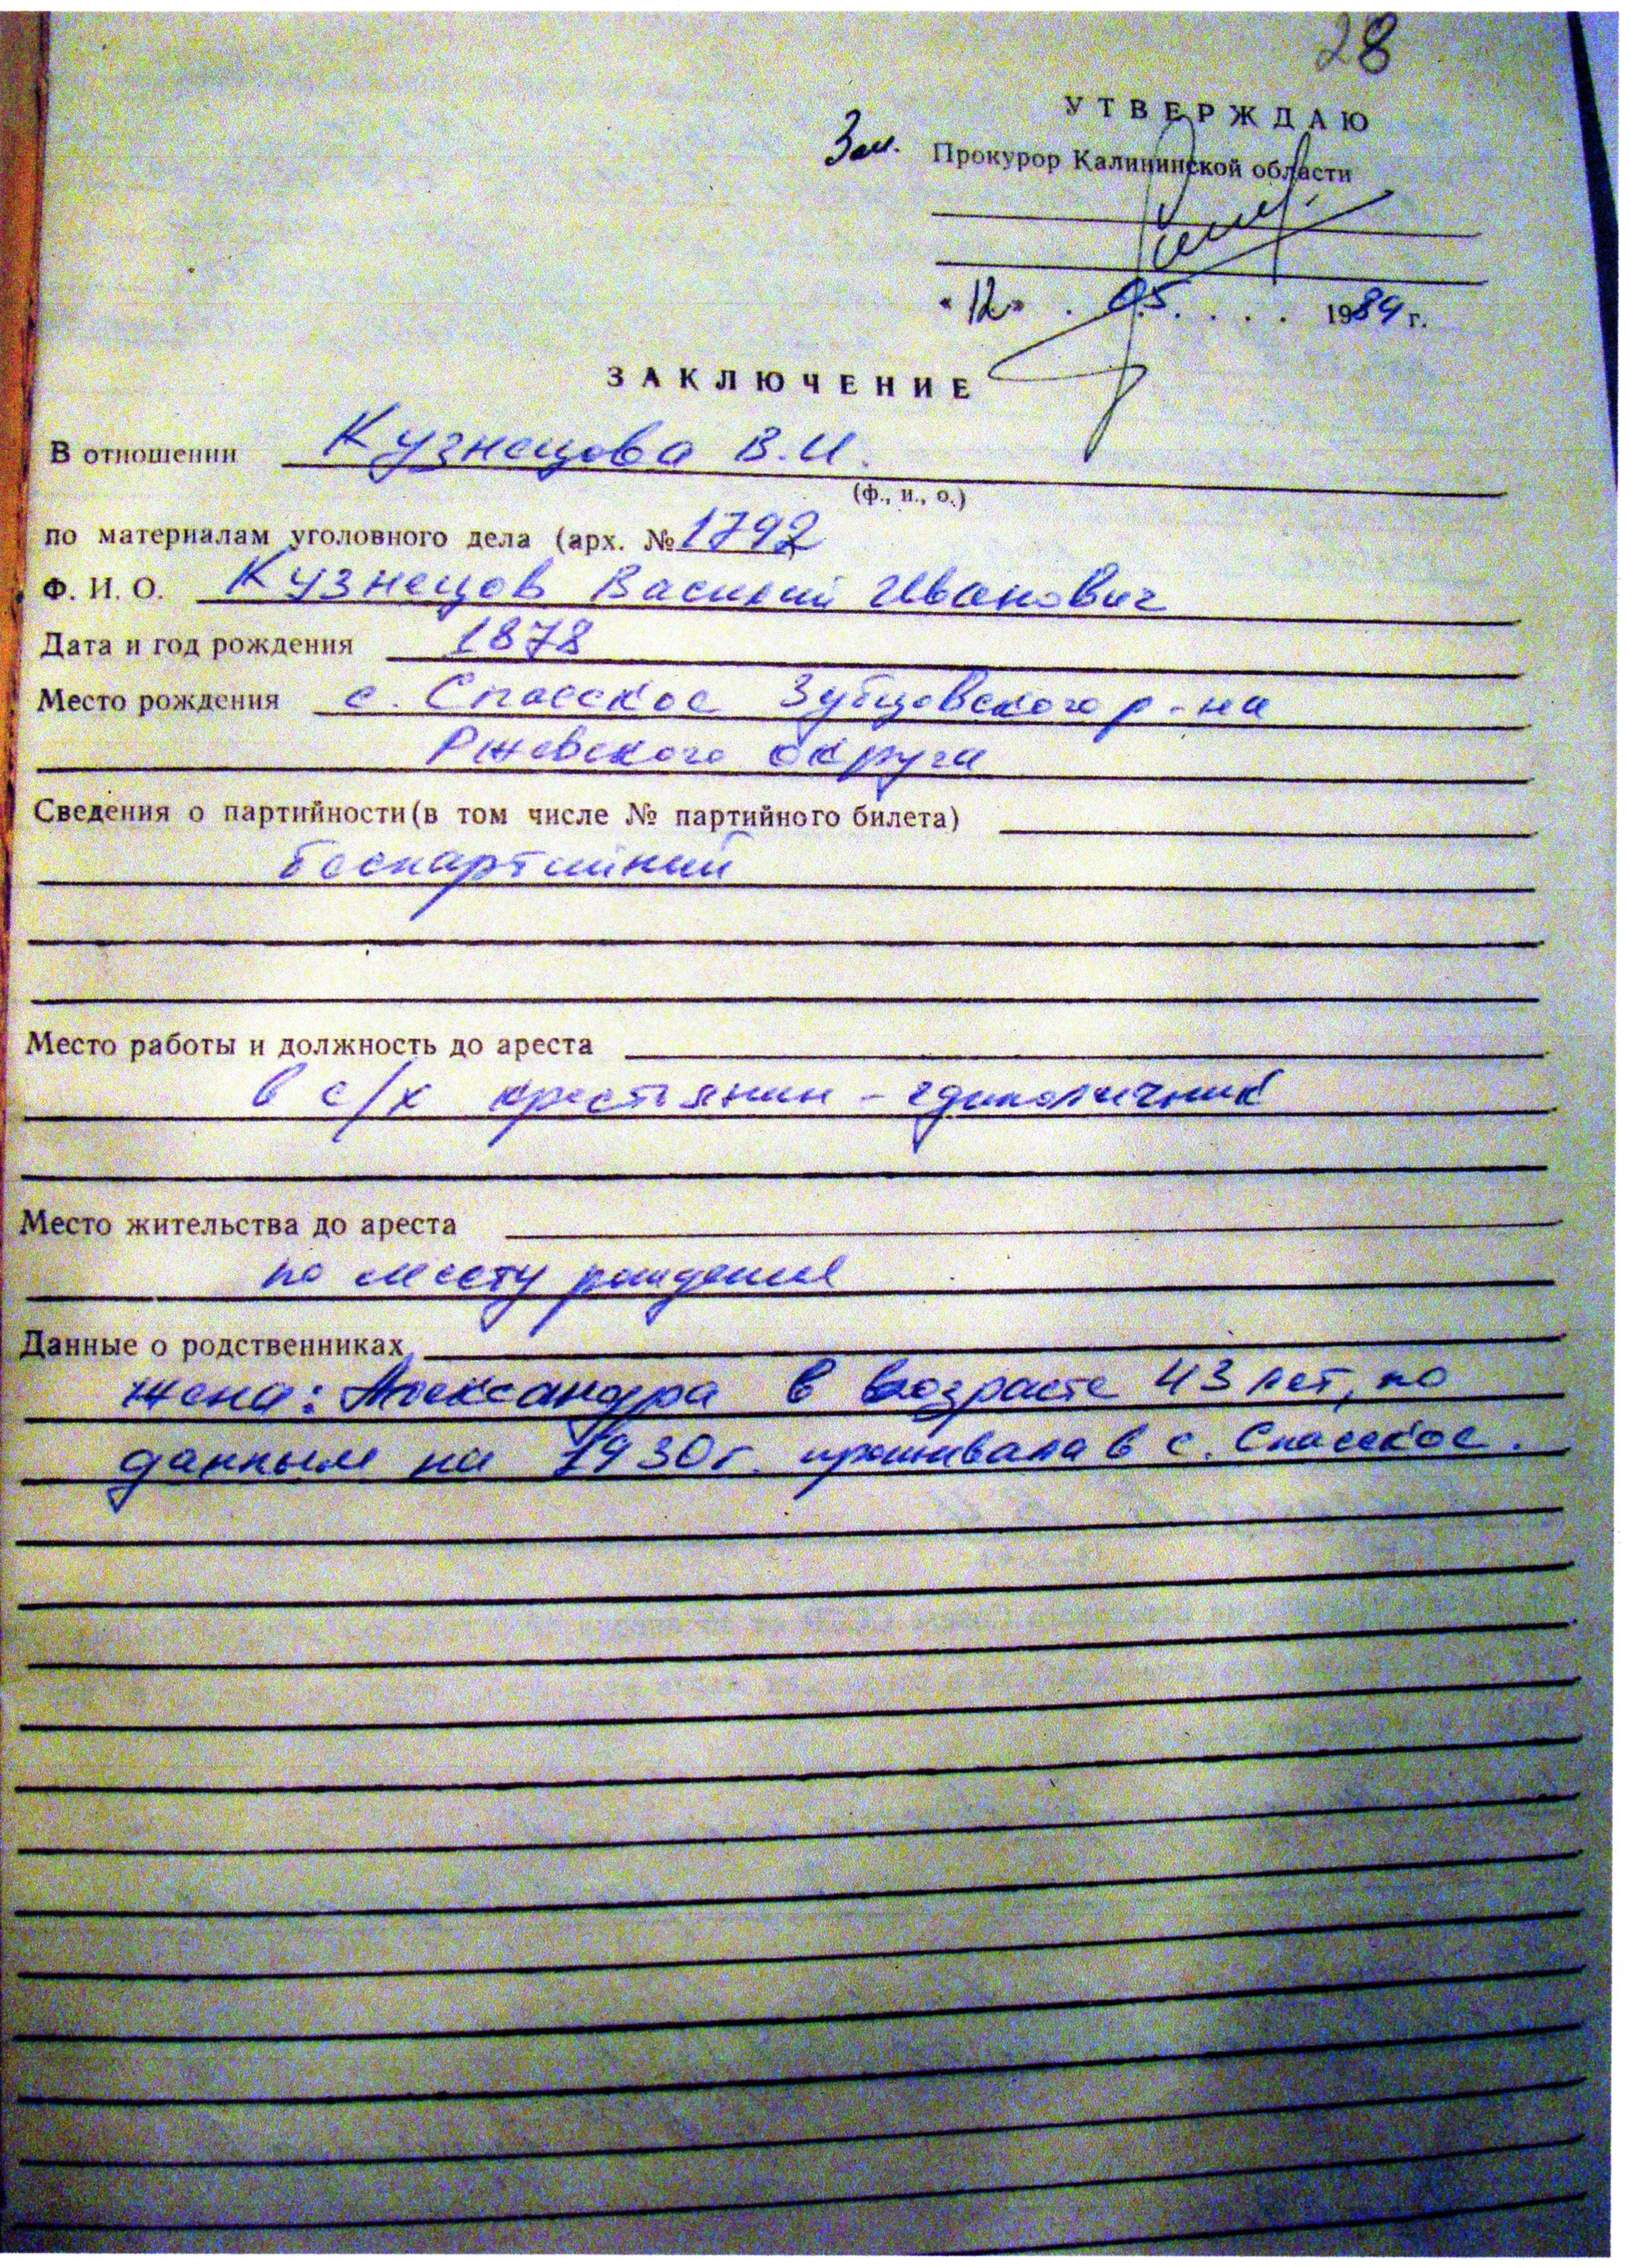 28
УТВЕРЖДАЮ
Зам. Прокурор Калининской области
«12» . 05. . . . 1989 г.
ЗАКЛЮЧЕНИЕ
В отношении Кузнецова В.И.
(ф., и., о.)
по материалам уголовного дела (арх. № 1792
Ф. И. О. Кузнецов Василий Иванович
Дата и год рождения 1878
Место рождения с. Спасское Зубцовского р-на
Ржевского округа
Сведения о партийности (в том числе № партийного билета)
беспартийный
Место работы и должность до ареста
в с/х крестьянин - единоличник
Место жительства до ареста
по месту рождения
Данные о родственниках
жена: Александра в возрасте 43 лет, по
данным на 1930г. проживала в с. Спасское.